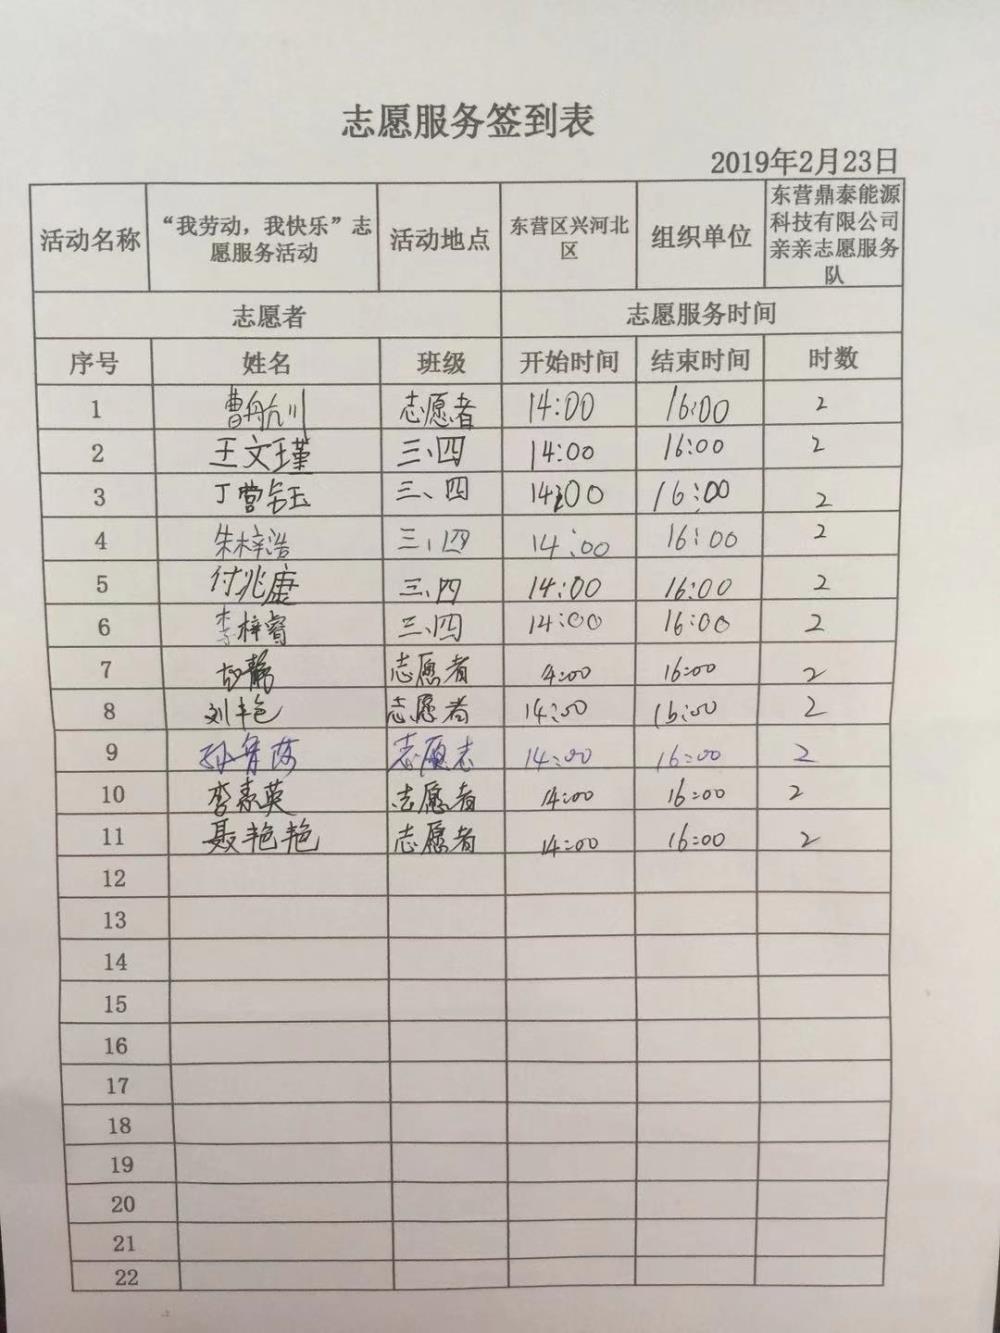 志愿服务签到表
2019年2月23日
活动名称 “我劳动，我快乐”志愿服务活动 活动地点 东营区兴河北区 组织单位 东营鼎泰能源科技有限公司亲亲志愿服务队
志愿者 志愿服务时间
序号 姓名 班级 开始时间 结束时间 时数
1 曹航川 志愿者 14:00 16:00 2
2 王文瑾 三、四 14:00 16:00 2
3 丁营钰 三、四 14:00 16:00 2
4 朱梓浩 三、四 14:00 16:00 2
5 付兆康 三、四 14:00 16:00 2
6 李梓睿 三、四 14:00 16:00 2
7 胡静 志愿者 4:00 16:00 2
8 刘艳 志愿者 14:00 16:00 2
9 孙 志愿志 14:00 16:00 2
10 李素英 志愿者 14:00 16:00 2
11 聂艳艳 志愿者 14:00 16:00 2
12
13
14
15
16
17
18
19
20
21
22